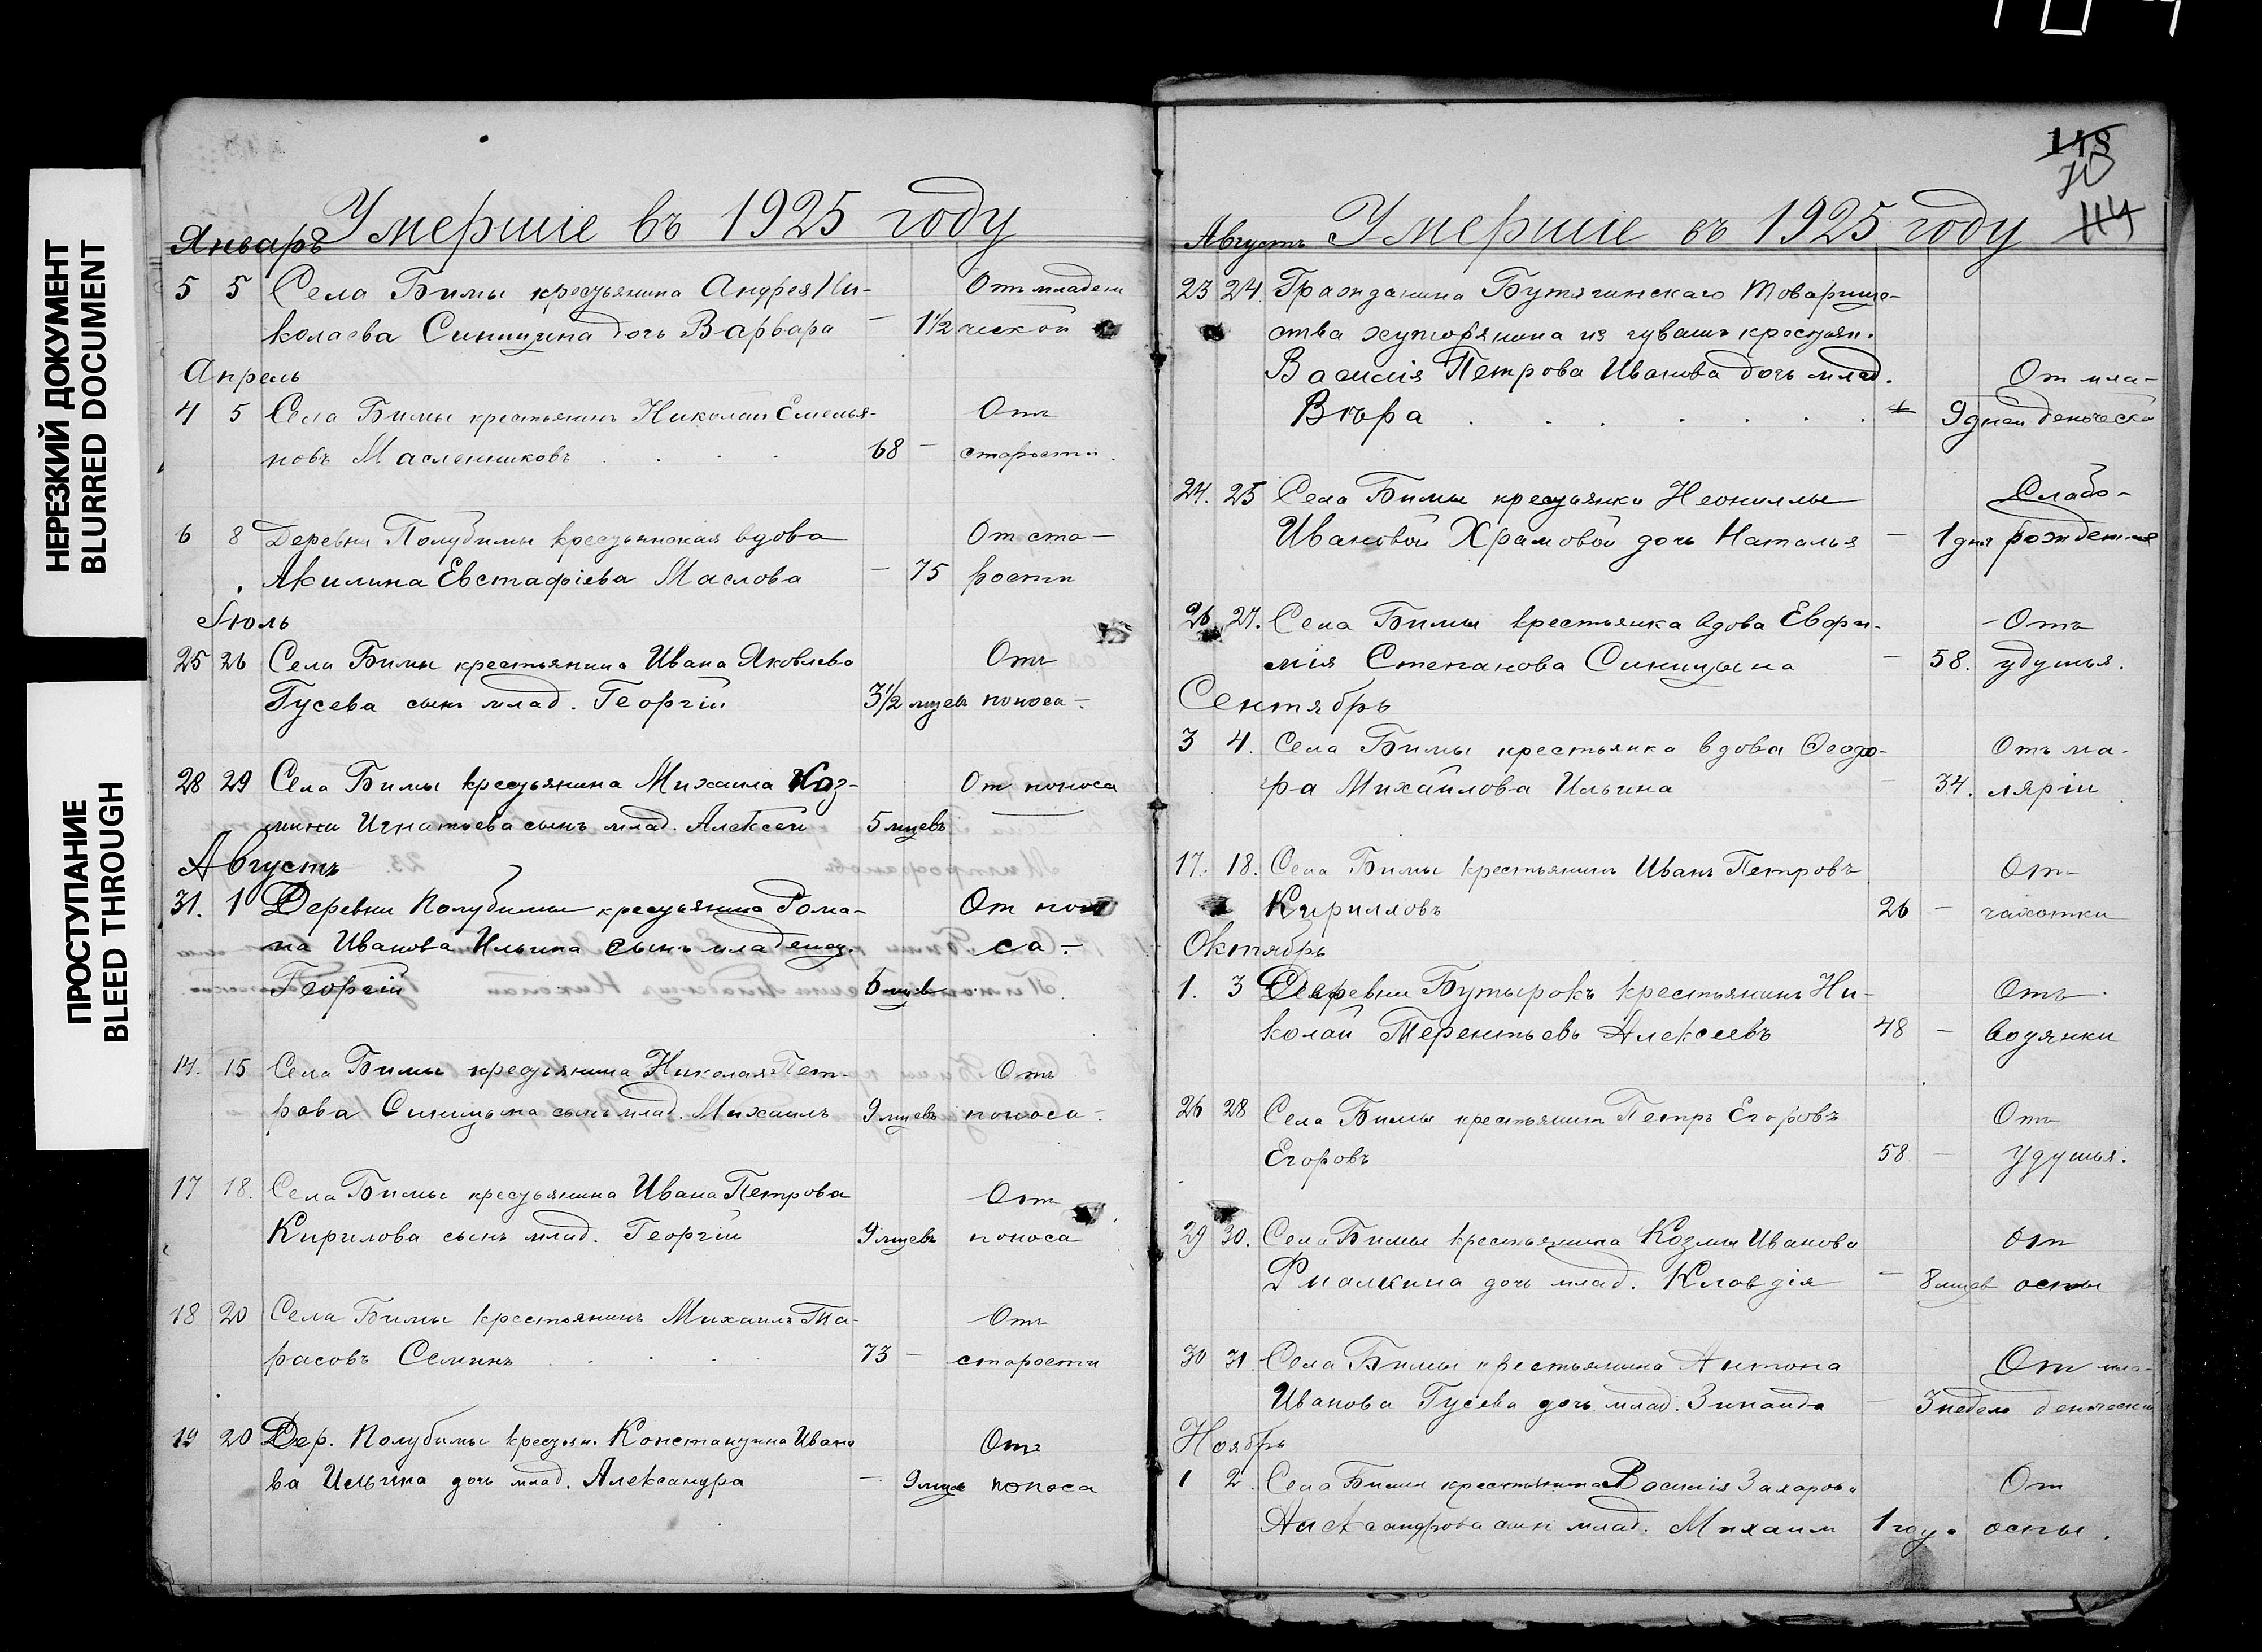 НЕРЕЗКИЙ ДОКУМЕНТ
BLURRED DOCUMENT
ПРОСТУПАНИЕ
BLEED THROUGH
Умершіе въ 1925 году
Январь
5 5 Села Бимы крестьянина Андрея Ни- От младен
колаева Синицина дочь Варвара — 1½ ческой
Апрель
4 5 Села Бимы крестьянинъ Николай Емелья- Отъ
новъ Масленниковъ . . . 68 — старости.
6 8 Деревни Полубимы крестьянская вдова От ста-
Акилина Евстафіева Маслова — 75 рости
Іюль
25 26 Села Бимы крестьянина Ивана Яковлева Отъ
Гусева сынъ млад. Георгій 3½ мцевъ поноса —
28 29 Села Бимы крестьянина Михаила Коз- От поноса
мина Игнатьева сынъ млад. Алексей 5 мцевъ —
Августъ
31. 1 Деревни Полубимы крестьянина Рома- От поно
на Иванова Ильина сынъ младенец. са —
Георгій 6 мцев
14. 15 Села Бимы крестьянина Николая Пет- Отъ
рова Синицына сынъ млад. Михаилъ 9 мцевъ поноса —
17 18. Села Бимы крестьянина Ивана Петрова От
Кирилова сынъ млад. Георгій 9 мцевъ поноса
18 20 Села Бимы крестьянинъ Михаилъ Та- Отъ
расовъ Семинъ . . . 73 — старости
19 20 Дер. Полубимы крестьян. Константина Ивано Отъ
ва Ильина дочь млад. Александра — 9 мцев поноса
118
70
114
Августъ Умершіе въ 1925 году
23 24. Гражданина Бутягинскаго Товарище-
ства хуторянина из чувашъ крестьян.
Василія Петрова Иванова дочь млад. От мла-
Вѣра . . . . . . . 9 дней денческой
24. 25 Села Бимы крестьянки Неониллы Слабо-
Ивановой Храмовой дочь Наталья — 1 дня рожденная
26 27. Села Бимы крестьянка вдова Евфи- Отъ
мія Степанова Синицына — 58. удушья.
Сентябрь
3 4. Села Бимы крестьянка вдова Ѳеодо- Отъ ма-
ра Михайлова Ильина — 34. ляріи
17. 18. Села Бимы крестьянинъ Иванъ Петровъ От
Кирилловъ 26 — чахотки
Октябрь
1. 3 Деревни Бутырокъ крестьянинъ Ни- Отъ
колай Терентьевъ Алексеевъ 48 — водянки
26 28 Села Бимы крестьянинъ Петръ Егоровъ Отъ
Егоровъ 58. — удушья.
29 30. Села Бимы крестьянина Козмы Иванова от
Фиалкина дочь млад. Клавдія — 8 мцев оспы
30 31. Села Бимы крестьянина Антона От мла-
Иванова Гусева дочь млад. Зинаида — 3 недел денческой
Ноябрь
1 2. Села Бимы крестьянина Василія Захарова От
Александрова сын млад. Михаил 1 года оспы.